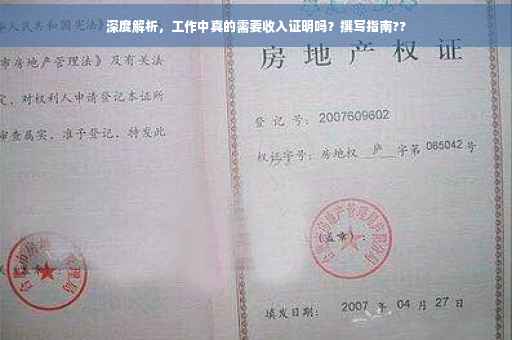 深度解析，工作中真的需要收入证明吗？撰写指南??
人民共和国宪法》
市房地产管理法》及有关法
定，对权利人申请登记本证所
审查属实，准予登记，特发此
房地产权证
登记号：2007609602
权证字号：房地权 庐 字第 065042 号
(盖章)：
填发日期：2007 年 04 月 27 日